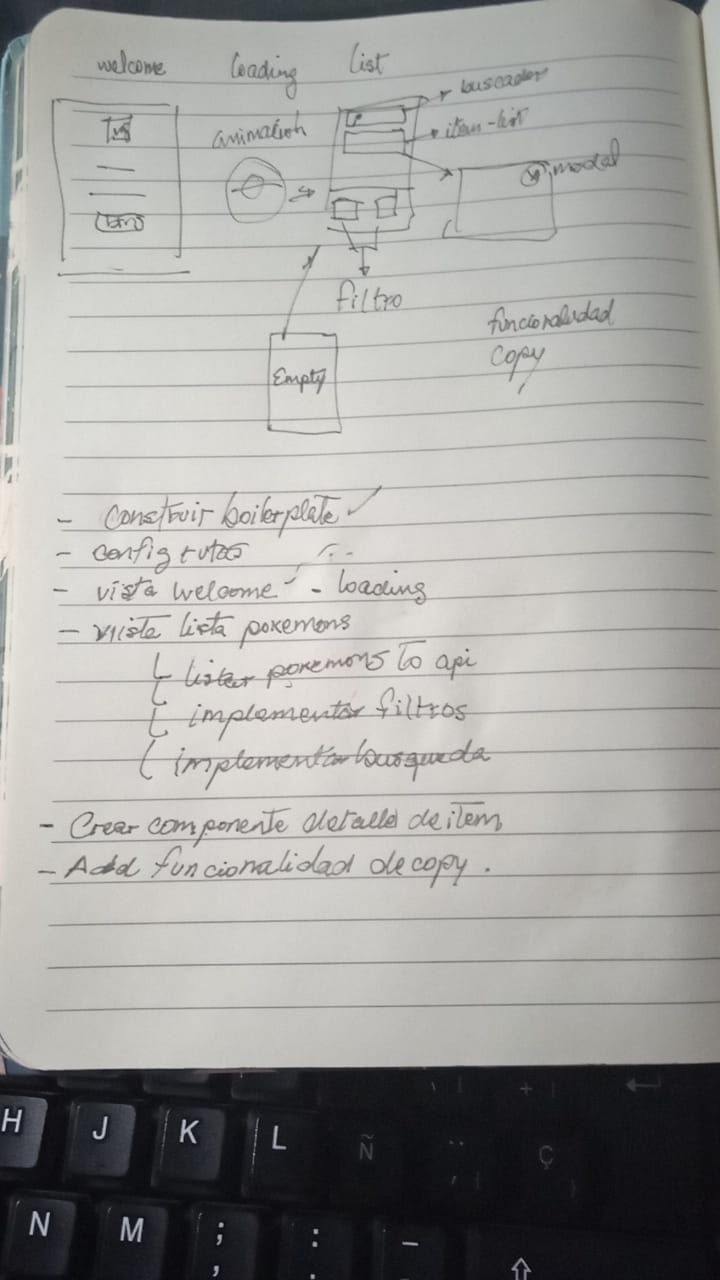 welcome loading list
buscador
animación
item-list
modal
btn
filtro
funcionalidad
copy
Empty
- Construir boilerplate ✓
- config rutas
- vista welcome ✓ - loading
- vista lista pokemons
listar pokemons to api
implementar filtros
implementar busqueda
- Crear componente detalle de item
- Add funcionalidad de copy.
H J K L Ñ ¨ ´ + Ç
N M ; , : . _ -